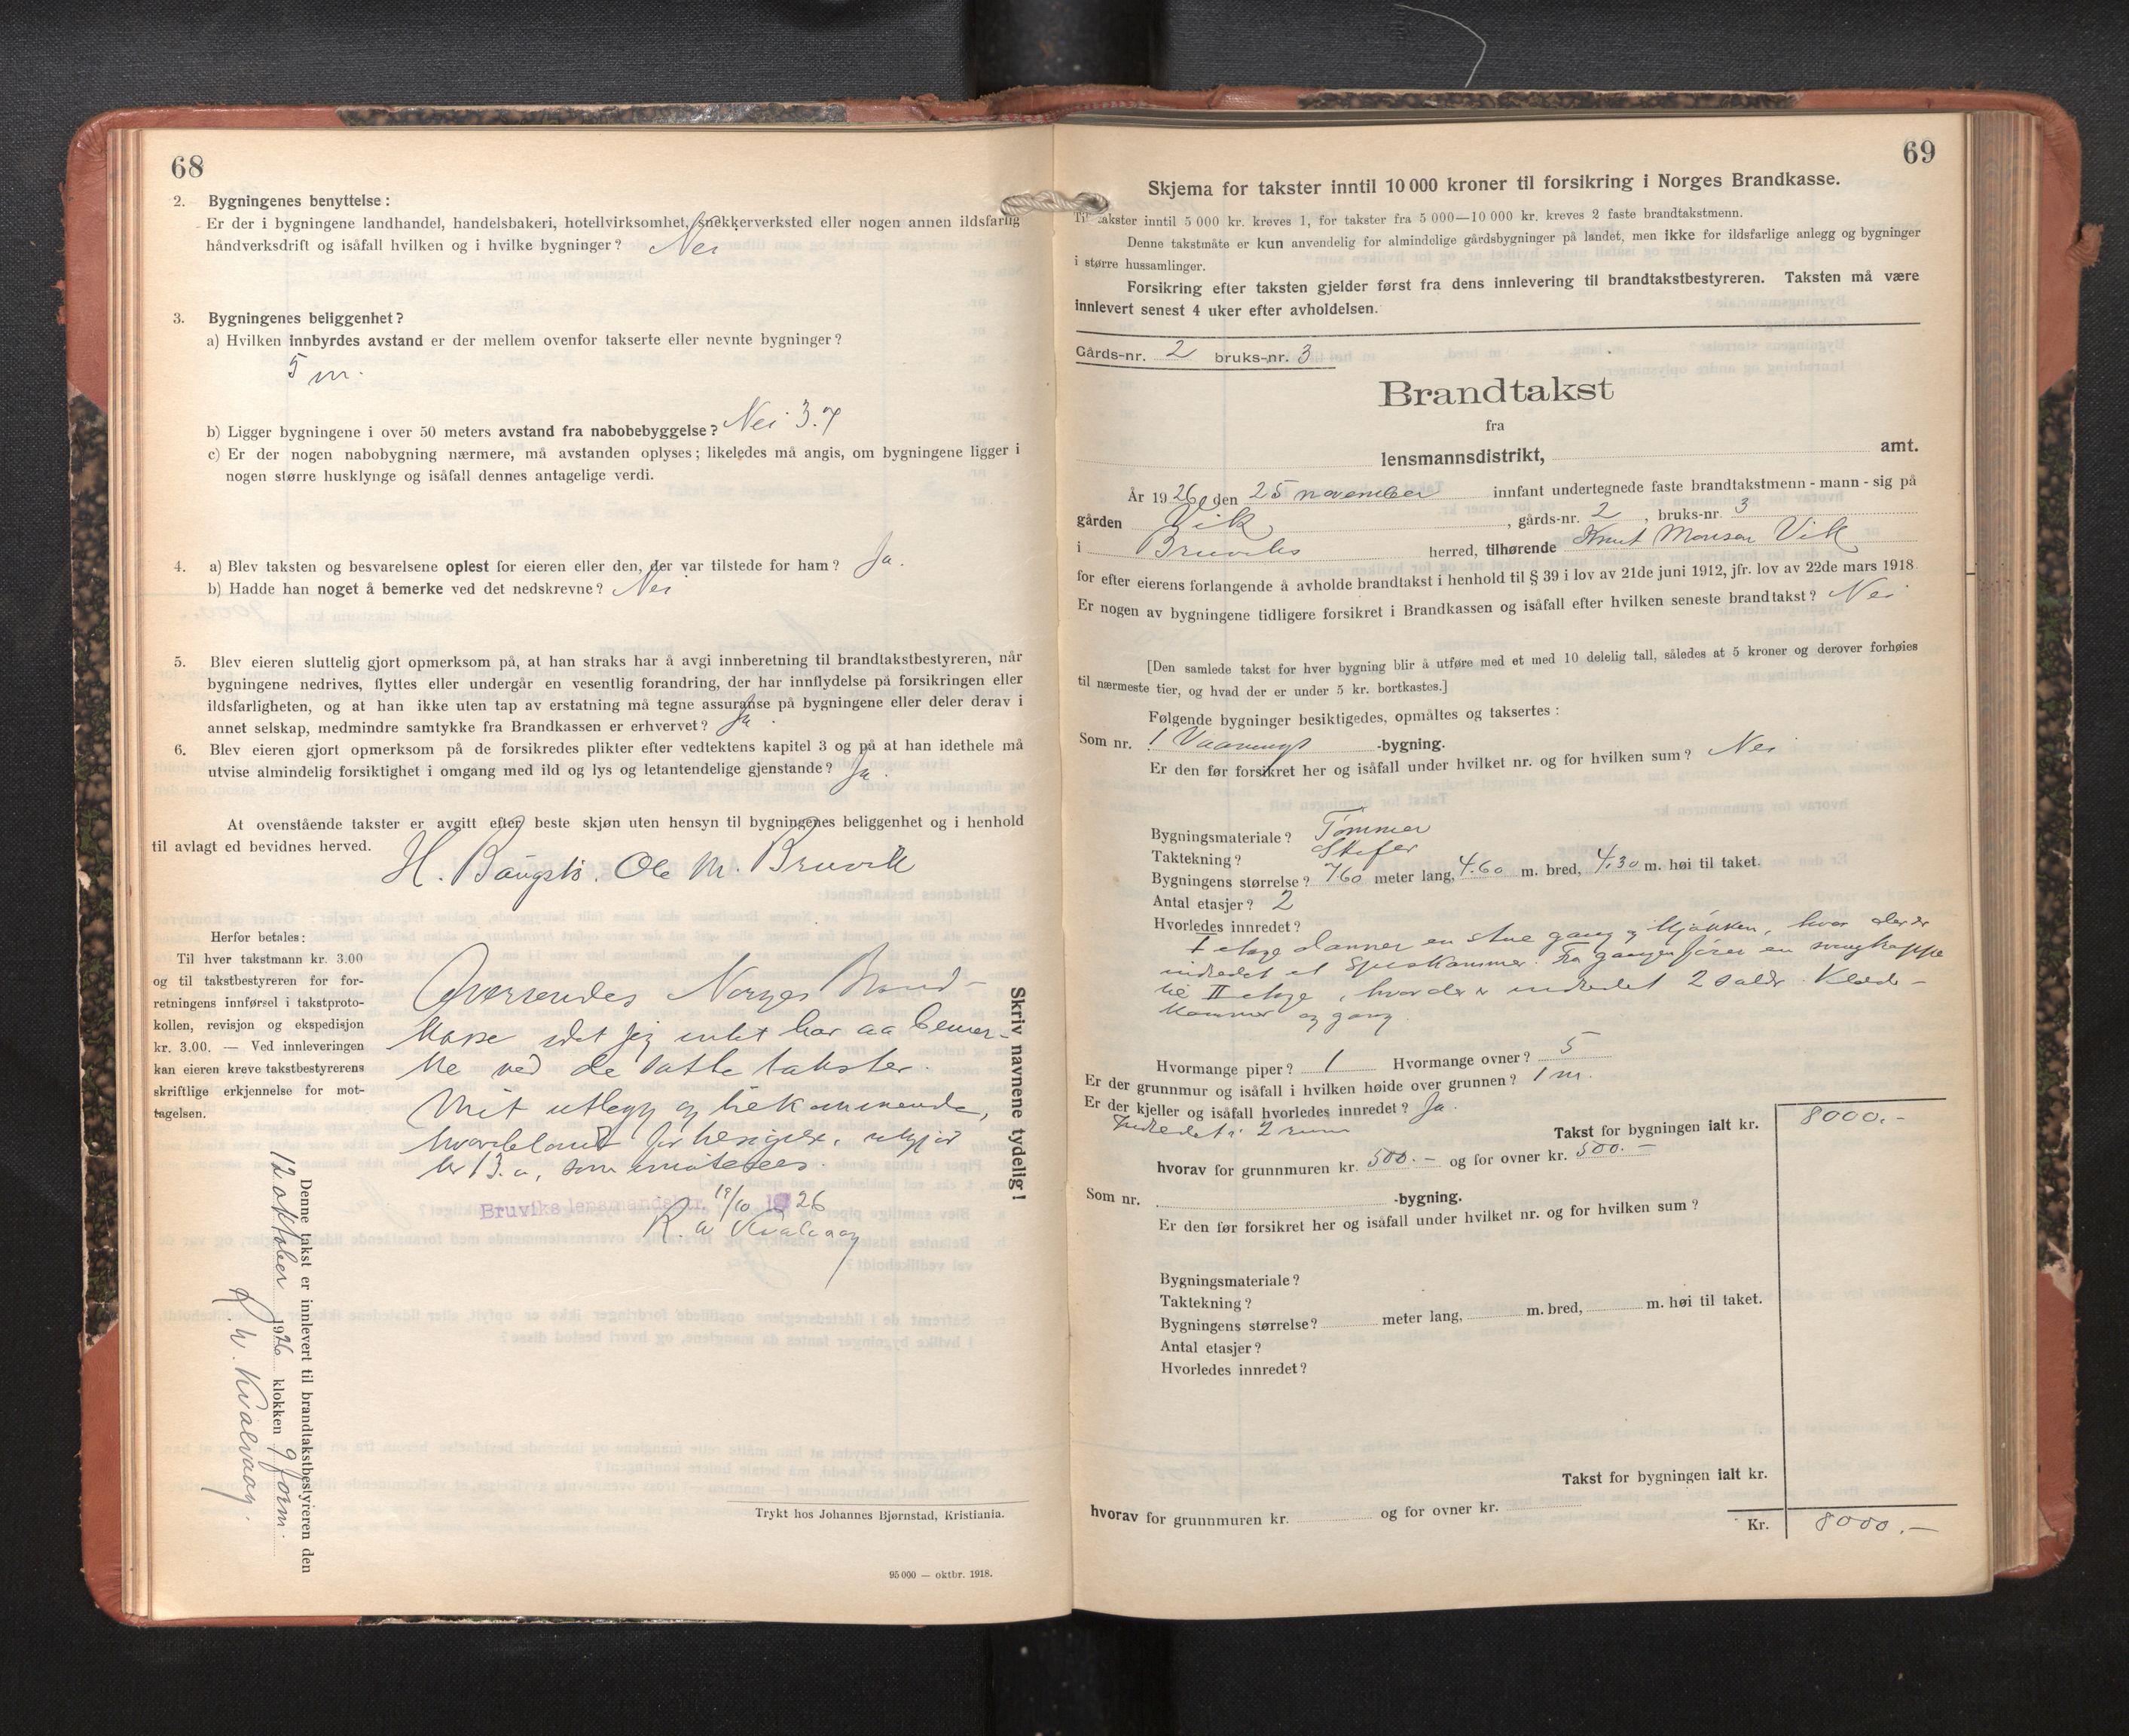 68
2. Bygningenes benyttelse :
Er der i bygningene landhandel, handelsbakeri, hotellvirksomhet, snekkerverksted eller nogen annen ildsfarlig
håndverksdrift og isåfall hvilken og i hvilke bygninger ? Nei
3. Bygningenes beliggenhet ?
a) Hvilken innbyrdes avstand er der mellem ovenfor takserte eller nevnte bygninger ?
5 m.
b) Ligger bygningene i over 50 meters avstand fra nabobebyggelse ? Nei 3.7
c) Er der nogen nabobygning nærmere, må avstanden oplyses ; likeledes må angis, om bygningene ligger i
nogen større husklynge og isåfall dennes antagelige verdi.
4. a) Blev taksten og besvarelsene oplest for eieren eller den, der var tilstede for ham ? Ja.
b) Hadde han noget å bemerke ved det nedskrevne ? Nei
5. Blev eieren sluttelig gjort opmerksom på, at han straks har å avgi innberetning til brandtakstbestyreren, når
bygningene nedrives, flyttes eller undergår en vesentlig forandring, der har innflydelse på forsikringen eller
ildsfarligheten, og at han ikke uten tap av erstatning må tegne assuranse på bygningene eller deler derav i
annet selskap, medmindre samtykke fra Brandkassen er erhvervet ? Ja.
6. Blev eieren gjort opmerksom på de forsikredes plikter efter vedtektens kapitel 3 og på at han idethele må
utvise almindelig forsiktighet i omgang med ild og lys og letantendelige gjenstande ? Ja.
At ovenstående takster er avgitt efter beste skjøn uten hensyn til bygningenes beliggenhet og i henhold
til avlagt ed bevidnes herved.
H. Ole M. Bruvik
Herfor betales :
Til hver takstmann kr. 3.00
og til takstbestyreren for for-
retningens innførsel i takstproto-
kollen, revisjon og ekspedisjon
kr. 3.00. — Ved innleveringen
kan eieren kreve takstbestyrerens
skriftlige erkjennelse for mot-
tagelsen.
Oversendes Norges Brand-
kasse idet jeg intet har aa bemer-
ke ved de satte takster.
Mit utlegg og tilekommende,
hvoriblandt for utgjør
kr 13.
Bruviks lensmandskt. 19/10 1926
R. W Kvalvaag
Skriv navnene tydelig !
Denne takst er innlevert til brandtakstbestyreren den
12 oktober 1926 klokken 9 form.
R. W. Kvalvaag.
Trykt hos Johannes Bjørnstad, Kristiania.
95 000 — oktbr. 1918.
69
Skjema for takster inntil 10 000 kroner til forsikring i Norges Brandkasse.
Til takster inntil 5 000 kr. kreves 1, for takster fra 5 000—10 000 kr. kreves 2 faste brandtakstmenn.
Denne takstmåte er kun anvendelig for almindelige gårdsbygninger på landet, men ikke for ildsfarlige anlegg og bygninger
i større hussamlinger.
Forsikring efter taksten gjelder først fra dens innlevering til brandtakstbestyreren. Taksten må være
innlevert senest 4 uker efter avholdelsen.
Gårds-nr. 2 bruks-nr. 3
Brandtakst
fra
lensmannsdistrikt, amt.
År 1926 den 25 november innfant undertegnede faste brandtakstmenn - mann - sig på
gården Vik, gårds-nr. 2, bruks-nr. 3
i Bruviks herred, tilhørende Knut Monsen Vik
for efter eierens forlangende å avholde brandtakst i henhold til § 39 i lov av 21de juni 1912, jfr. lov av 22de mars 1918.
Er nogen av bygningene tidligere forsikret i Brandkassen og isåfall efter hvilken seneste brandtakst ? Nei
[Den samlede takst for hver bygning blir å utføre med et med 10 delelig tall, således at 5 kroner og derover forhøies
til nærmeste tier, og hvad der er under 5 kr. bortkastes.]
Følgende bygninger besiktigedes, opmåltes og taksertes :
Som nr. 1 Vaanings -bygning.
Er den før forsikret her og isåfall under hvilket nr. og for hvilken sum ? Nei
Bygningsmateriale ? Tømmer
Taktekning ? Skifer
Bygningens størrelse ? 7.60 meter lang, 4.60 m. bred, 4.30 m. høi til taket.
Antal etasjer ? 2
Hvorledes innredet ?
I etage danner en stue gang og kjøkken, hvor der er
indredet et Spiskammer. Fra gangen fører en svingtrappe
til II etage, hvor der er indredet 2 saler. Klæd-
kammer og gang.
Hvormange piper ? 1 Hvormange ovner ? 5
Er der grunnmur og isåfall i hvilken høide over grunnen ? 1 m.
Er der kjeller og isåfall hvorledes innredet ? Ja.
Indredet i 2 rum
Takst for bygningen ialt kr. 8000.-
hvorav for grunnmuren kr. 500.- og for ovner kr. 500.-
Som nr. -bygning.
Er den før forsikret her og isåfall under hvilket nr. og for hvilken sum ?
Bygningsmateriale ?
Taktekning ?
Bygningens størrelse ? meter lang, m. bred, m. høi til taket.
Antal etasjer ?
Hvorledes innredet ?
Takst for bygningen ialt kr.
hvorav for grunnmuren kr. og for ovner kr.
Kr. 8000.-